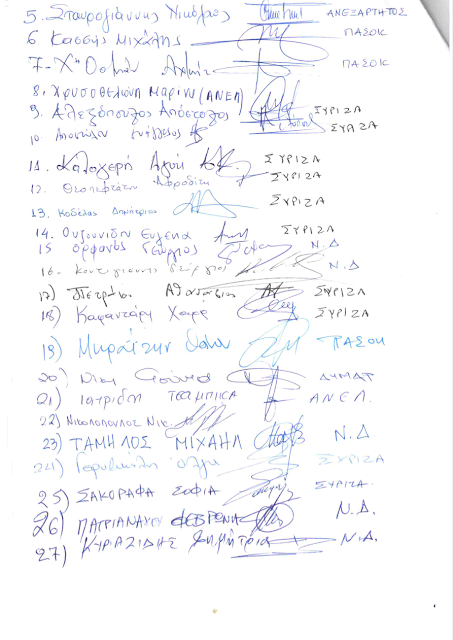 5. Σταυρογιάννης Νικόλαος ΑΝΕΞΑΡΤΗΤΟΣ
6. Κασσής Μιχάλης ΠΑΣΟΚ
7- Χ" Οσμάν Αχμέτ ΠΑΣΟΚ
8. Χρυσοβελώνη Μαρίνα (ΑΝΕΛ)
9. Αλεξόπουλος Απόστολος ΣΥΡΙΖΑ
10. ΣΥΡΙΖΑ
11. Καλογερή Αγνή ΣΥΡΙΖΑ
12. Θεοπεφτάτου Αφροδίτη ΣΥΡΙΖΑ
13. Κοδέλας Δημήτριος ΣΥΡΙΖΑ
14. Ουζουνίδου Ευγενία ΣΥΡΙΖΑ
15 Ορφανός Γεώργιος Ν.Δ
16. Κοντογιάννης Γεώργιος Ν.Δ
17) Πετράκος Αθανάσιος ΣΥΡΙΖΑ
18) Καφαντάρη Χαρά ΣΥΡΙΖΑ
19) ΠΑΣΟΚ
20) Νίκη ΔΗΜΑΡ
21) Ιατρίδη ΤΣΑΜΠΙΚΑ ΑΝΕΛ.
22) Νικολόπουλος Νικ.
23) ΤΑΜΗΛΟΣ ΜΙΧΑΗΛ Ν.Δ
24) Γεροβασίλη Όλγα ΣΥΡΙΖΑ
25) ΣΑΚΟΡΑΦΑ ΣΟΦΙΑ ΣΥΡΙΖΑ.
26) ΠΑΤΡΙΑΝΑΚΟΥ ΦΕΒΡΩΝΙΑ Ν.Δ.
27) ΚΥΡΙΑΖΙΔΗΣ Δημήτριος Ν.Δ.